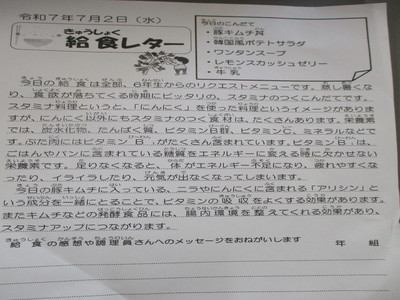 令和７年７月２日（水）
きゅうしょく
給食レター
今日のこんだて
・豚キムチ丼
・韓国風ポテトサラダ
・ワンタンスープ
・レモンスカッシュゼリー
・牛乳
今日の給食は全部、6年生からのリクエストメニューです。蒸し暑くな
り、食欲が落ちてくる時期にピッタリの、スタミナのつくこんだてです。
スタミナ料理というと、「にんにく」を使った料理というイメージがありま
すが、にんにく以外にもスタミナのつく食材は、たくさんあります。栄養素
では、炭水化物、たんぱく質、ビタミンB群、ビタミンC、ミネラルなどで
す。ぶた肉にはビタミンB₁がたくさん含まれています。ビタミンB₁は、
ごはんやパンに含まれている糖質をエネルギーに変える時に欠かせない
栄養素です。足りなくなると、体がエネルギー不足になり、疲れやすくな
ったり、イライラしたり、元気が出なくなってしまいます。
今日の豚キムチに入っている、ニラやにんにくに含まれる「アリシン」と
いう成分を一緒にとることで、ビタミンの吸収をよくする効果があります。
またキムチなどの発酵食品には、腸内環境を整えてくれる効果があり、
スタミナアップにつながります。
給食の感想や調理員さんへのメッセージをおねがいします　年　組